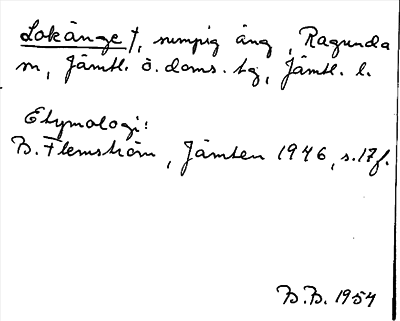 Lokänge †, sumpig äng, Ragunda
sn, Jämtl. ö. doms. tg, Jämtl. l.
Etymologi:
B. Flemström, Jämten 1946, s. 17f.
B.B. 1954